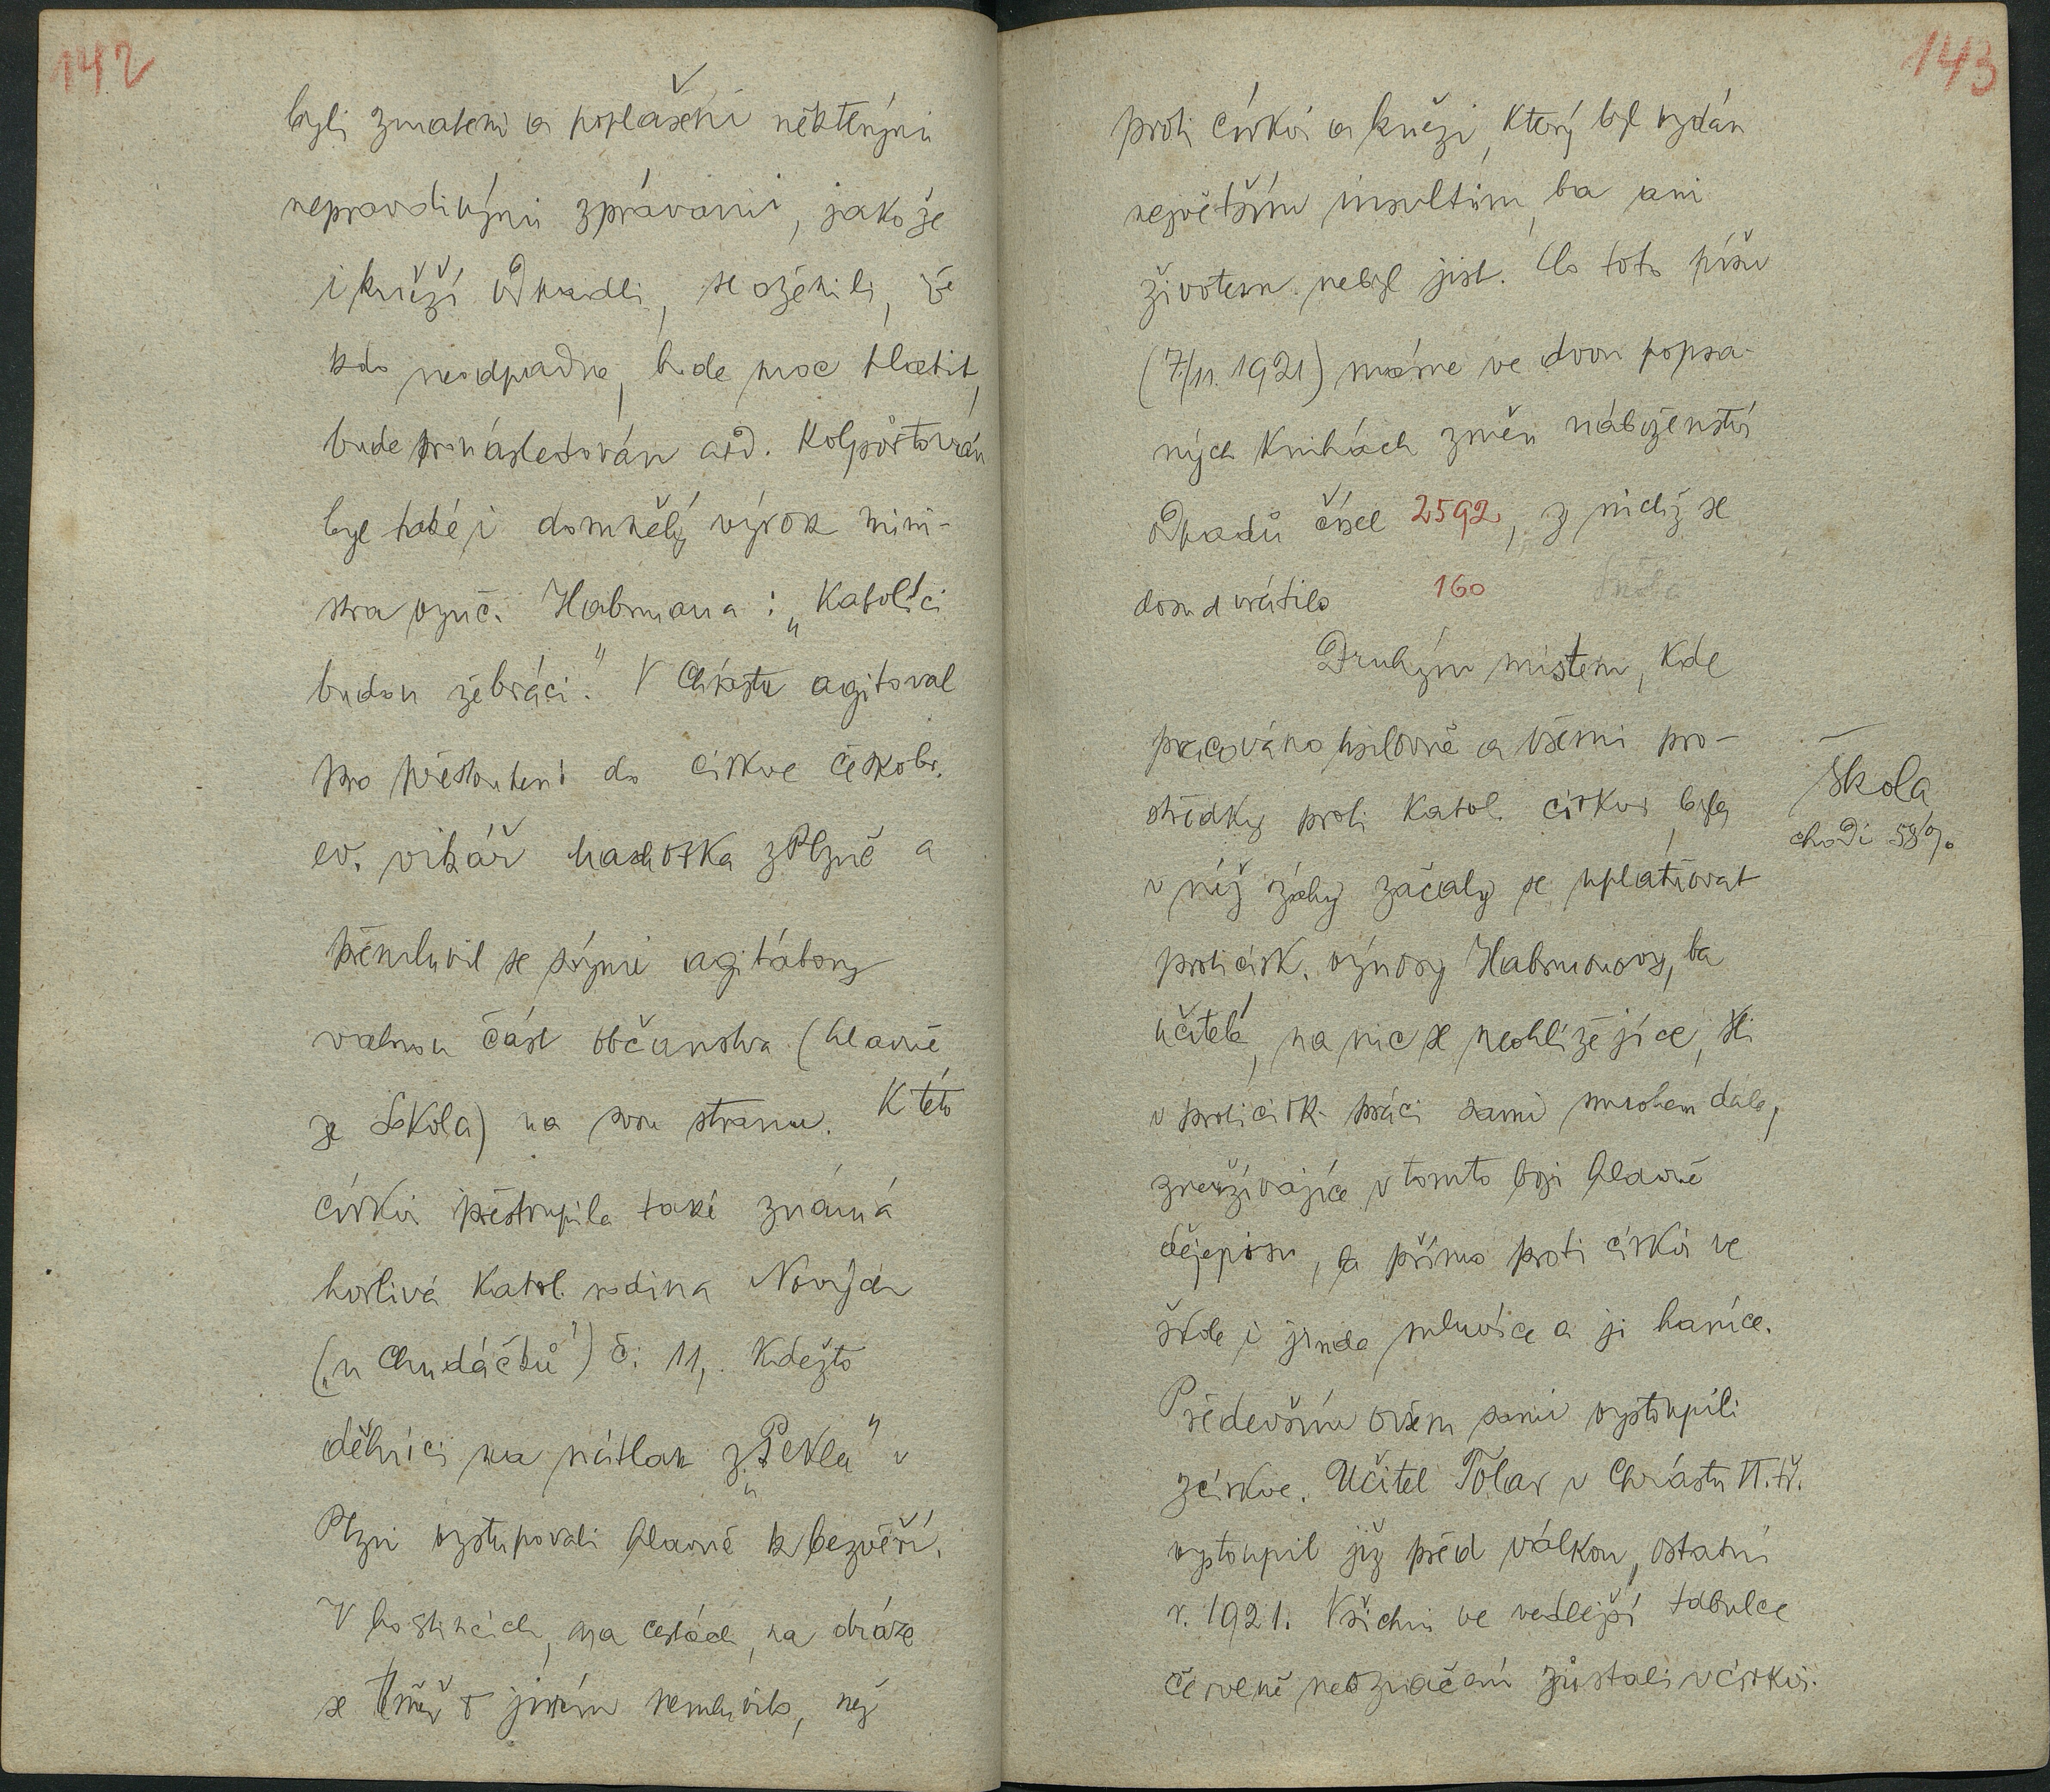 142
byli zmateni a poplašeni některými
nepravdivými zprávami, jako že
i kněží odpadli, se oženili, že
kdo neodpadne, bude moc platit,
bude pronásledován atd. Kolportován
byl také i domnělý výrok mini-
stra vyuč. Habrmana: „Katolíci
budou žebráci." V Chrástu agitoval
pro přestoupení do církve českobr.
ev. vikář z Plzně a
přemluvil se svými agitátory
valnou část občanstva (hlavně
ze Sokola) na svou stranu. K této
církvi přestoupila také známá
horlivá katol. rodina Nový
(„u Chudáčků") č. 11, kdežto
dělníci na nátlak z „Pekla" v
Plzni vystupovali hlavně k bezvěří.
V hostincích, na cestách, na dráze
se téměř o jiném nemluvilo, než
143
proti církvi a knězi, který byl vydán
největším insultům, ba ani
životem nebyl jist. Co toto píšu
(7./11. 1921) máme ve dvou popsa-
ných knihách změn náboženství
odpadů čísel 2592, z nichž se
dosud vrátilo 160
Druhým místem, kde
pracováno usilovně a všemi pro-
středky proti katol. církvi, byla
škola
chodí 58%
v níž záhy začaly se uplatňovat
proticírk. výnosy Habrmanovy, ba
učitelé, na nic se neohlížející, šli
v proticírk. práci sami mnohem dále,
zneužívajíce v tomto boji hlavně
dějepisu, a přímo proti církvi ve
škole i jinde mluvíce a ji haníce.
Především ovšem sami vystoupili
z církve. Učitel Tolar v Chrástu II. tř.
vystoupil již před válkou, ostatní
r. 1921. Všichni ve vedlejší tabulce
červeně neoznačení zůstali v církvi.